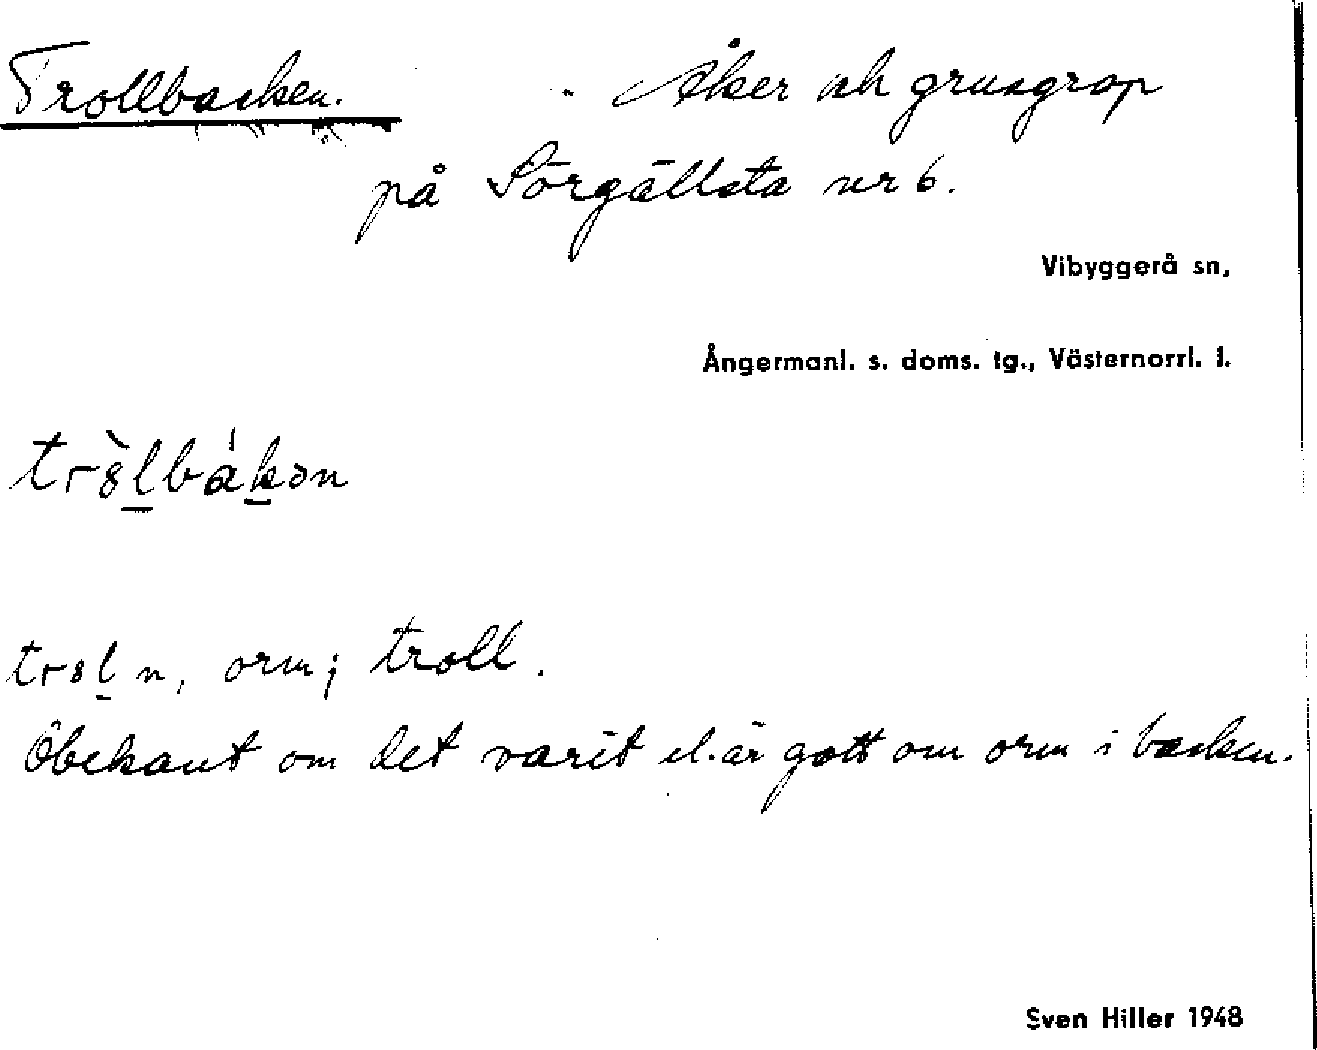 Trollbacken. Åker och grusgrop
på Sörgällsta nr 6.
Vibyggerå sn,
Ångermanl. s. doms. tg., Västernorrl. l.
tr8̀lbákən
tr8l n, orm; troll.
Obekant om det varit el. är gott om orm i backen.
Sven Hiller 1948